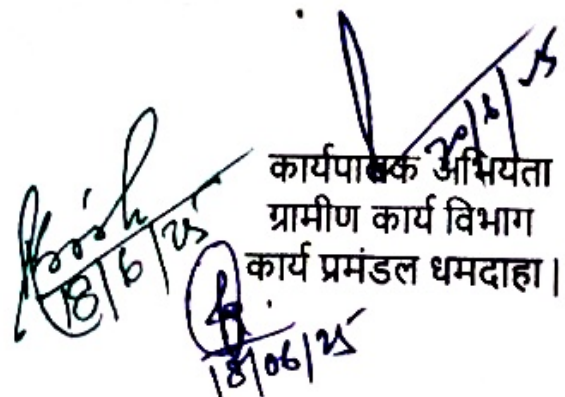 कार्यपालक अभियंता
ग्रामीण कार्य विभाग
कार्य प्रमंडल धमदाहा।
18/6/25
18/06/25